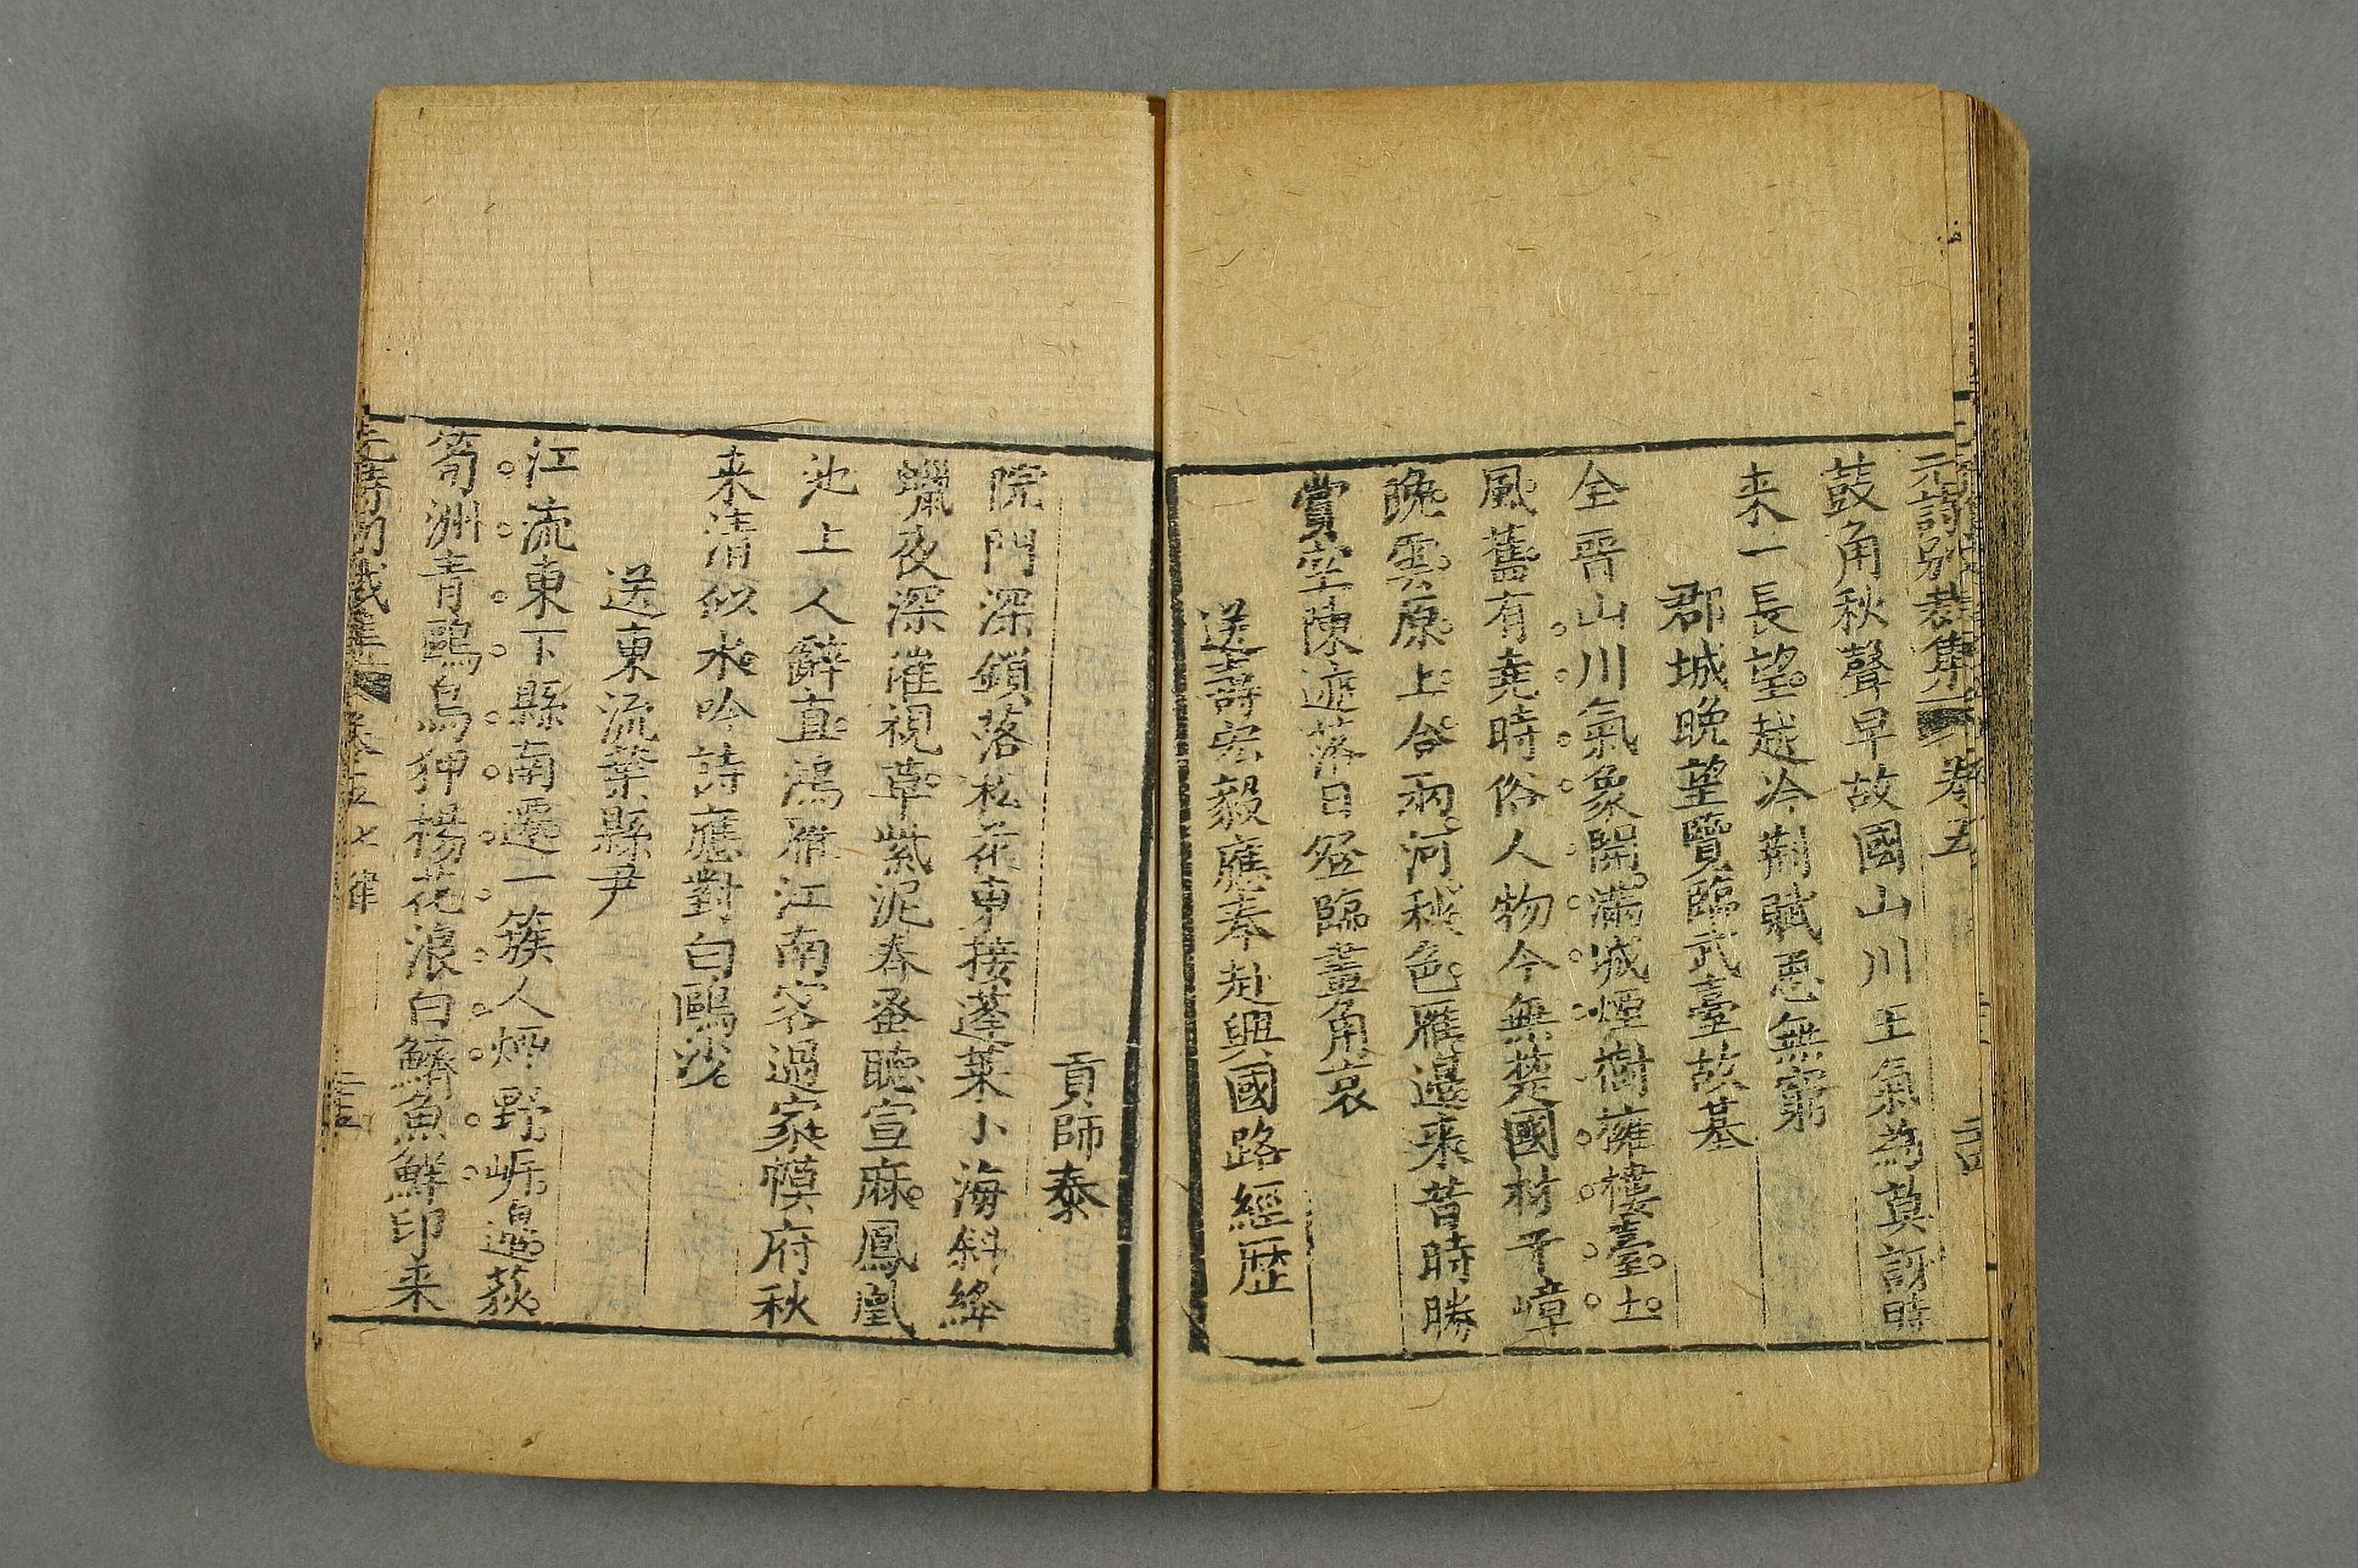 元詩別裁集 卷五
鼓角秋聲早故國山川王氣為莫訝時
来一長望越冷荊賦思無窮
郡城晚望覽臨武臺故基
全晉山川氣象開滿城煙樹擁樓臺土
風舊有堯時俗人物今無楚國材千嶂
晚雲原上合兩河秋色雁邊來昔時勝
賞空陳迹落日登臨畫角哀
送壽宏毅應奉赴興國路經歷
貢師泰
院門深鎖落松花東接蓬萊小海斜絳
蠟夜深催視草紫泥春蚤聽宣麻鳳凰
池上人辭直鴻雁江南客過家幙府秋
来清似水吟詩應對白鷗沙
送東流葉縣尹
江流東下縣南遷一簇人煙野㟁邊荻
筍洲青鷗鳥狎楊花浪白鱭魚鮮印来
卷五 七律